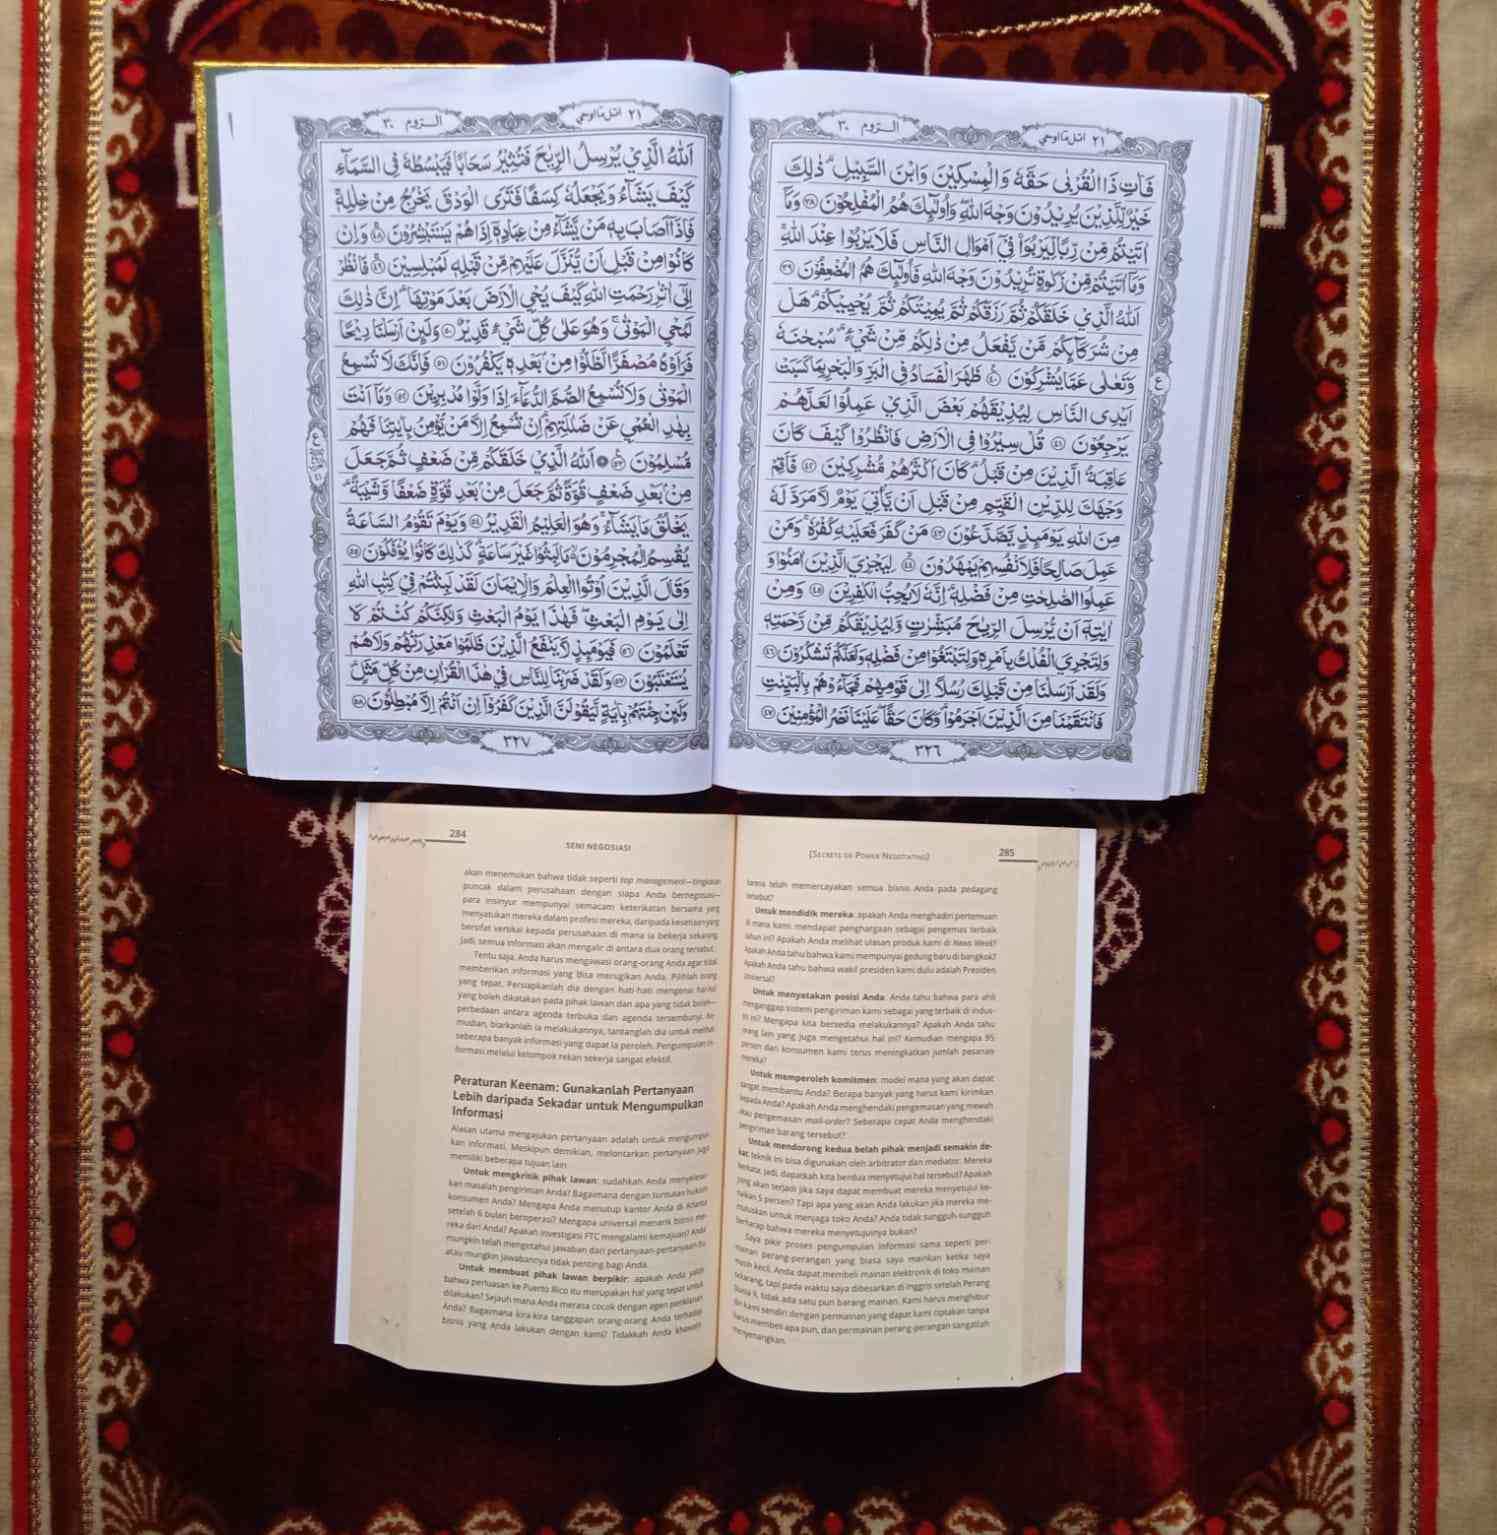 اتل ما اوحي ٢١
الروم ٣٠
فَاٰتِ ذَا الْقُرْبٰى حَقَّهٗ وَالْمِسْكِيْنَ وَابْنَ السَّبِيْلِۗ ذٰلِكَ
خَيْرٌ لِّلَّذِيْنَ يُرِيْدُوْنَ وَجْهَ اللّٰهِ وَاُولٰۤىِٕكَ هُمُ الْمُفْلِحُوْنَ ٣٨ وَمَآ
اٰتَيْتُمْ مِّنْ رِّبًا لِّيَرْبُوَا۟ فِيْٓ اَمْوَالِ النَّاسِ فَلَا يَرْبُوْا عِنْدَ اللّٰهِ
وَمَآ اٰتَيْتُمْ مِّنْ زَكٰوةٍ تُرِيْدُوْنَ وَجْهَ اللّٰهِ فَاُولٰۤىِٕكَ هُمُ الْمُضْعِفُوْنَ ٣٩
اَللّٰهُ الَّذِيْ خَلَقَكُمْ ثُمَّ رَزَقَكُمْ ثُمَّ يُمِيْتُكُمْ ثُمَّ يُحْيِيْكُمْۗ هَلْ
مِنْ شُرَكَاۤىِٕكُمْ مَّنْ يَّفْعَلُ مِنْ ذٰلِكُمْ مِّنْ شَيْءٍۗ سُبْحٰنَهٗ
وَتَعٰلٰى عَمَّا يُشْرِكُوْنَ ٤٠ ظَهَرَ الْفَسَادُ فِى الْبَرِّ وَالْبَحْرِ بِمَا كَسَبَتْ
اَيْدِى النَّاسِ لِيُذِيْقَهُمْ بَعْضَ الَّذِيْ عَمِلُوْا لَعَلَّهُمْ
يَرْجِعُوْنَ ٤١ قُلْ سِيْرُوْا فِى الْاَرْضِ فَانْظُرُوْا كَيْفَ كَانَ
عَاقِبَةُ الَّذِيْنَ مِنْ قَبْلُۗ كَانَ اَكْثَرُهُمْ مُّشْرِكِيْنَ ٤٢ فَاَقِمْ
وَجْهَكَ لِلدِّيْنِ الْقَيِّمِ مِنْ قَبْلِ اَنْ يَّأْتِيَ يَوْمٌ لَّا مَرَدَّ لَهٗ
مِنَ اللّٰهِ يَوْمَىِٕذٍ يَّصَّدَّعُوْنَ ٤٣ مَنْ كَفَرَ فَعَلَيْهِ كُفْرُهٗۚ وَمَنْ
عَمِلَ صَالِحًا فَلِاَنْفُسِهِمْ يَمْهَدُوْنَ ٤٤ لِيَجْزِيَ الَّذِيْنَ اٰمَنُوْا وَ
عَمِلُوا الصّٰلِحٰتِ مِنْ فَضْلِهٖۗ اِنَّهٗ لَا يُحِبُّ الْكٰفِرِيْنَ ٤٥ وَمِنْ
اٰيٰتِهٖٓ اَنْ يُّرْسِلَ الرِّيٰحَ مُبَشِّرٰتٍ وَّلِيُذِيْقَكُمْ مِّنْ رَّحْمَتِهٖ
وَلِتَجْرِيَ الْفُلْكُ بِاَمْرِهٖ وَلِتَبْتَغُوْا مِنْ فَضْلِهٖ وَلَعَلَّكُمْ تَشْكُرُوْنَ ٤٦
وَلَقَدْ اَرْسَلْنَا مِنْ قَبْلِكَ رُسُلًا اِلٰى قَوْمِهِمْ فَجَاۤءُوْهُمْ بِالْبَيِّنٰتِ
فَانْتَقَمْنَا مِنَ الَّذِيْنَ اَجْرَمُوْاۗ وَكَانَ حَقًّا عَلَيْنَا نَصْرُ الْمُؤْمِنِيْنَ ٤٧
ع
٣٢٦
اتل ما اوحي ٢١
الروم ٣٠
اَللّٰهُ الَّذِيْ يُرْسِلُ الرِّيٰحَ فَتُثِيْرُ سَحَابًا فَيَبْسُطُهٗ فِى السَّمَاۤءِ
كَيْفَ يَشَاۤءُ وَيَجْعَلُهٗ كِسَفًا فَتَرَى الْوَدْقَ يَخْرُجُ مِنْ خِلٰلِهٖۚ
فَاِذَآ اَصَابَ بِهٖ مَنْ يَّشَاۤءُ مِنْ عِبَادِهٖٓ اِذَا هُمْ يَسْتَبْشِرُوْنَ ٤٨ وَاِنْ
كَانُوْا مِنْ قَبْلِ اَنْ يُّنَزَّلَ عَلَيْهِمْ مِّنْ قَبْلِهٖ لَمُبْلِسِيْنَ ٤٩ فَانْظُرْ
اِلٰٓى اٰثٰرِ رَحْمَتِ اللّٰهِ كَيْفَ يُحْيِ الْاَرْضَ بَعْدَ مَوْتِهَاۗ اِنَّ ذٰلِكَ
لَمُحْيِ الْمَوْتٰىۚ وَهُوَ عَلٰى كُلِّ شَيْءٍ قَدِيْرٌ ٥٠ وَلَىِٕنْ اَرْسَلْنَا رِيْحًا
فَرَاَوْهُ مُصْفَرًّا لَّظَلُّوْا مِنْۢ بَعْدِهٖ يَكْفُرُوْنَ ٥١ فَاِنَّكَ لَا تُسْمِعُ
الْمَوْتٰى وَلَا تُسْمِعُ الصُّمَّ الدُّعَاۤءَ اِذَا وَلَّوْا مُدْبِرِيْنَ ٥٢ وَمَآ اَنْتَ
بِهٰدِ الْعُمْيِ عَنْ ضَلٰلَتِهِمْۗ اِنْ تُسْمِعُ اِلَّا مَنْ يُّؤْمِنُ بِاٰيٰتِنَا فَهُمْ
مُّسْلِمُوْنَ ٥٣ ۞ اَللّٰهُ الَّذِيْ خَلَقَكُمْ مِّنْ ضَعْفٍ ثُمَّ جَعَلَ
مِنْۢ بَعْدِ ضَعْفٍ قُوَّةً ثُمَّ جَعَلَ مِنْۢ بَعْدِ قُوَّةٍ ضَعْفًا وَّشَيْبَةًۗ
يَخْلُقُ مَا يَشَاۤءُۚ وَهُوَ الْعَلِيْمُ الْقَدِيْرُ ٥٤ وَيَوْمَ تَقُوْمُ السَّاعَةُ
يُقْسِمُ الْمُجْرِمُوْنَ مَا لَبِثُوْا غَيْرَ سَاعَةٍۗ كَذٰلِكَ كَانُوْا يُؤْفَكُوْنَ ٥٥
وَقَالَ الَّذِيْنَ اُوْتُوا الْعِلْمَ وَالْاِيْمَانَ لَقَدْ لَبِثْتُمْ فِيْ كِتٰبِ اللّٰهِ
اِلٰى يَوْمِ الْبَعْثِۖ فَهٰذَا يَوْمُ الْبَعْثِ وَلٰكِنَّكُمْ كُنْتُمْ لَا
تَعْلَمُوْنَ ٥٦ فَيَوْمَىِٕذٍ لَّا يَنْفَعُ الَّذِيْنَ ظَلَمُوْا مَعْذِرَتُهُمْ وَلَا هُمْ
يُسْتَعْتَبُوْنَ ٥٧ وَلَقَدْ ضَرَبْنَا لِلنَّاسِ فِيْ هٰذَا الْقُرْاٰنِ مِنْ كُلِّ مَثَلٍۗ
وَلَىِٕنْ جِئْتَهُمْ بِاٰيَةٍ لَّيَقُوْلَنَّ الَّذِيْنَ كَفَرُوْٓا اِنْ اَنْتُمْ اِلَّا مُبْطِلُوْنَ ٥٨
٣٢٧
284
SENI NEGOSIASI
akan menemukan bahwa tidak seperti top management—tingkatan
puncak dalam perusahaan dengan siapa Anda bernegosiasi—
para insinyur mempunyai semacam keterikatan bersama yang
menyatukan mereka dalam profesi mereka, daripada kesetiaan yang
bersifat vertikal kepada perusahaan di mana ia bekerja sekarang.
Jadi, semua informasi akan mengalir di antara dua orang tersebut.
Tentu saja, Anda harus mengawasi orang-orang Anda agar tidak
memberikan informasi yang bisa merugikan Anda. Pilihlah orang
yang tepat. Persiapkanlah dia dengan hati-hati mengenai hal-hal
yang boleh dikatakan pada pihak lawan dan apa yang tidak boleh—
perbedaan antara agenda terbuka dan agenda tersembunyi. Ke-
mudian, biarkanlah ia melakukannya, tantanglah dia untuk melihat
seberapa banyak informasi yang dapat ia peroleh. Pengumpulan in-
formasi melalui kelompok rekan sekerja sangat efektif.
Peraturan Keenam: Gunakanlah Pertanyaan
Lebih daripada Sekadar untuk Mengumpulkan
Informasi
Alasan utama mengajukan pertanyaan adalah untuk mengumpul-
kan informasi. Meskipun demikian, melontarkan pertanyaan juga
memiliki beberapa tujuan lain:
Untuk mengkritik pihak lawan: sudahkah Anda menyelesai-
kan masalah pengiriman Anda? Bagaimana dengan tuntutan hukum
konsumen Anda? Mengapa Anda menutup kantor Anda di Atlanta
setelah 6 bulan beroperasi? Mengapa universal menarik bisnis me-
reka dari Anda? Apakah investigasi FTC mengalami kemajuan? Anda
mungkin telah mengetahui jawaban dari pertanyaan-pertanyaan itu
atau mungkin jawabannya tidak penting bagi Anda.
Untuk membuat pihak lawan berpikir: apakah Anda yakin
bahwa perluasan ke Puerto Rico itu merupakan hal yang tepat untuk
dilakukan? Sejauh mana Anda merasa cocok dengan agen periklanan
Anda? Bagaimana kira-kira tanggapan orang-orang Anda terhadap
bisnis yang Anda lakukan dengan kami? Tidakkah Anda khawatir
[Secrets of Power Negotiating]
285
karena telah memercayakan semua bisnis Anda pada pedagang
tersebut?
Untuk mendidik mereka: apakah Anda menghadiri pertemuan
di mana kami mendapat penghargaan sebagai pengemas terbaik
tahun ini? Apakah Anda melihat ulasan produk kami di News Week?
Apakah Anda tahu bahwa kami mempunyai gedung baru di bangkok?
Apakah Anda tahu bahwa wakil presiden kami dulu adalah Presiden
Universal?
Untuk menyatakan posisi Anda: Anda tahu bahwa para ahli
menganggap sistem pengiriman kami sebagai yang terbaik di indus-
tri ini? Mengapa kita bersedia melakukannya? Apakah Anda tahu
orang lain yang juga mengetahui hal ini? Kemudian mengapa 95
persen dari konsumen kami terus meningkatkan jumlah pesanan
mereka?
Untuk memperoleh komitmen: model mana yang akan dapat
sangat membantu Anda? Berapa banyak yang harus kami kirimkan
kepada Anda? Apakah Anda menghendaki pengemasan yang mewah
atau pengemasan mail-order? Seberapa cepat Anda menghendaki
pengiriman barang tersebut?
Untuk mendorong kedua belah pihak menjadi semakin de-
kat: teknik ini bisa digunakan oleh arbitrator dan mediator: Mereka
berkata, jadi, dapatkah kita berdua menyetujui hal tersebut? Apakah
yang akan terjadi jika saya dapat membuat mereka menyetujui ke-
naikan 5 persen? Tapi apa yang akan Anda lakukan jika mereka me-
mutuskan untuk menjaga toko Anda? Anda tidak sungguh-sungguh
berharap bahwa mereka menyetujuinya bukan?
Saya pikir proses pengumpulan informasi sama seperti per-
mainan perang-perangan yang biasa saya mainkan ketika saya
masih kecil. Anda dapat membeli mainan elektronik di toko mainan
sekarang, tapi pada waktu saya dibesarkan di Inggris setelah Perang
Dunia II, tidak ada satu pun barang mainan. Kami harus menghibur
diri kami sendiri dengan permainan yang dapat kami ciptakan tanpa
harus membeli apa pun, dan permainan perang-perangan sangatlah
menyenangkan.